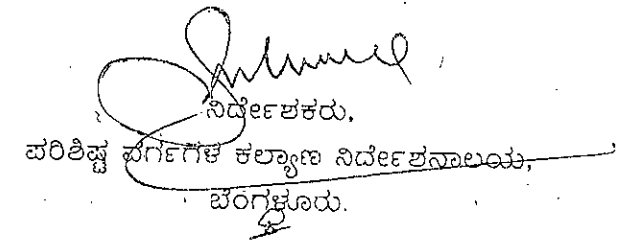 ನಿರ್ದೇಶಕರು,
ಪರಿಶಿಷ್ಟ ವರ್ಗಗಳ ಕಲ್ಯಾಣ ನಿರ್ದೇಶನಾಲಯ,
ಬೆಂಗಳೂರು.